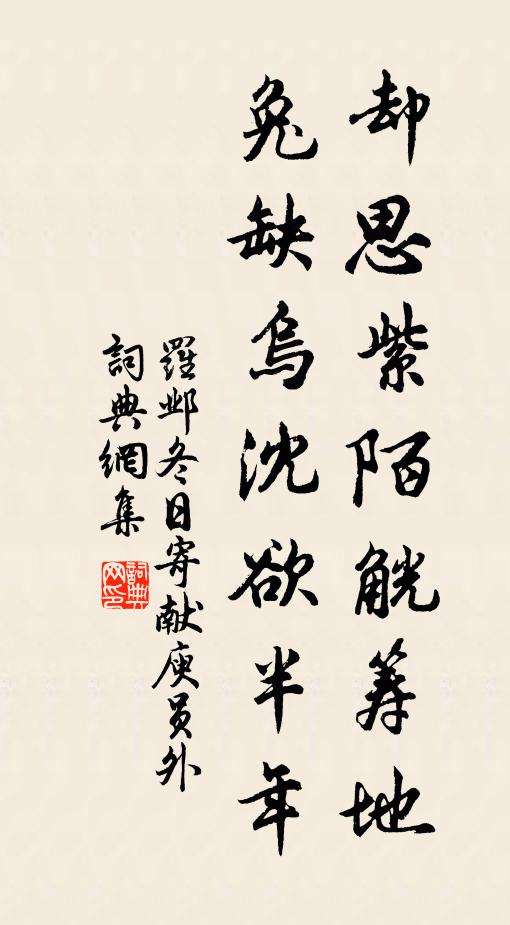 却思紫陌觥筹地
兔缺烏沈欲半年
羅邺冬日寄献庾員外
詞典網集
詞典网印